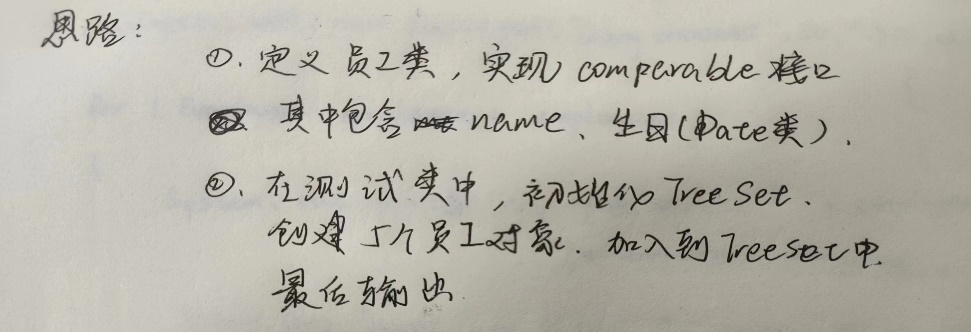 思路：
①. 定义员工类，实现 comparable 接口
其中包含 name、生日(Date类).
②. 在测试类中，初始化 TreeSet.
创建 5个员工对象. 加入到 Treeset中.
最后输出